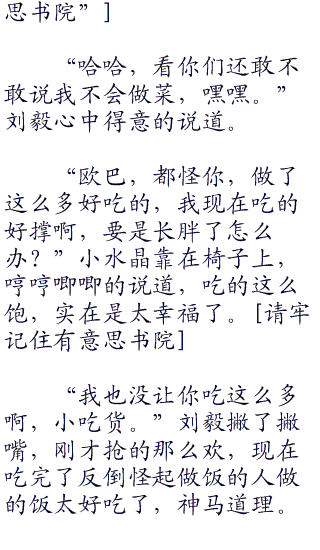 思书院”]
“哈哈，看你们还敢不
敢说我不会做菜，嘿嘿。”
刘毅心中得意的说道。
“欧巴，都怪你，做了
这么多好吃的，我现在吃的
好撑啊，要是长胖了怎么
办？”小水晶靠在椅子上，
哼哼唧唧的说道，吃的这么
饱，实在是太幸福了。[请牢
记住有意思书院]
“我也没让你吃这么多
啊，小吃货。”刘毅撇了撇
嘴，刚才抢的那么欢，现在
吃完了反倒怪起做饭的人做
的饭太好吃了，神马道理。